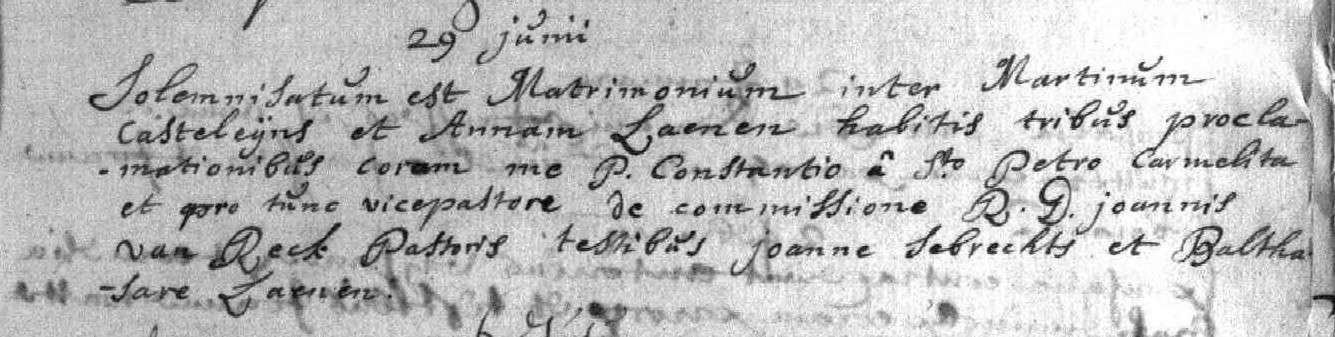 29 junii
Solemnisatum est Matrimonium inter Martinum
Casteleÿns et Annam Laenen habitis tribus procla-
-mationibus coram me P. Constantio â Sto Petro Carmelita
et pro tunc vicepastore de commissione R. D. joannis
van Reck Pastoris testibus joanne Sebrechts et Baltha-
-sare Laenen.